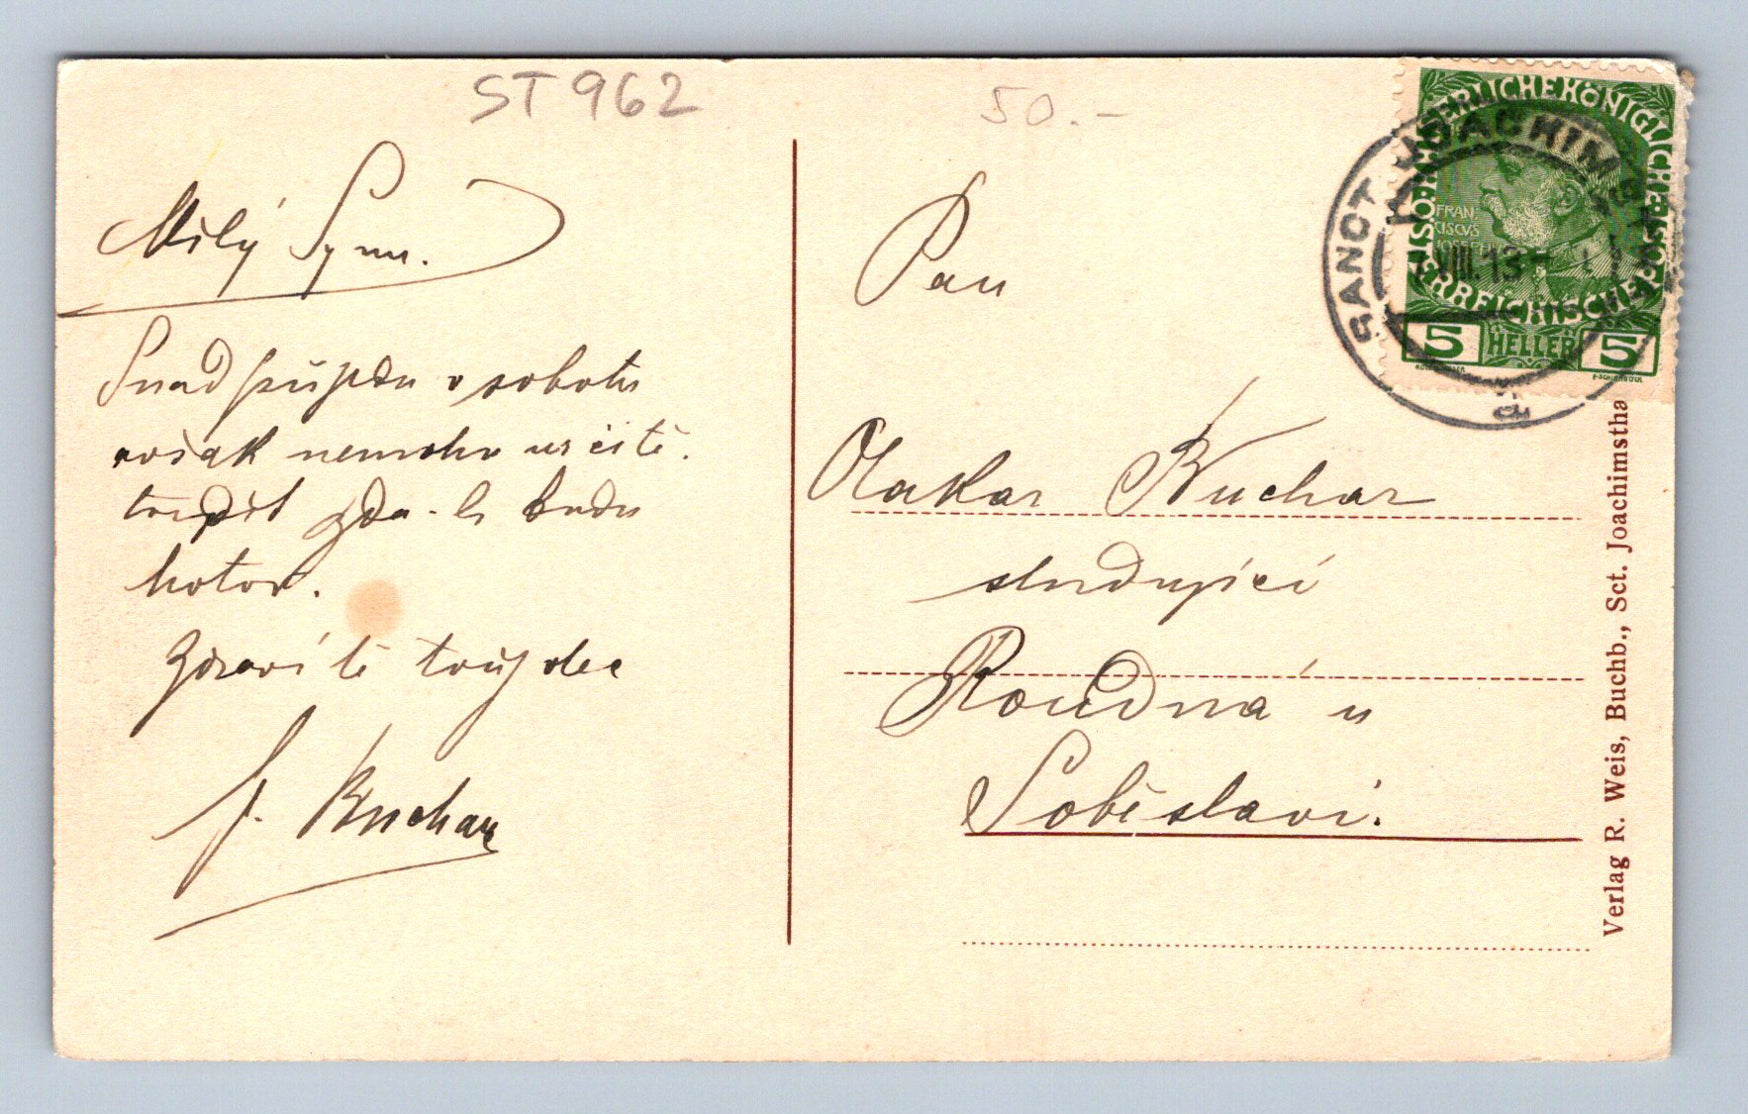 ST 962
50.-
Milý Synu.
Snad přijedu v sobotu
avšak nemohu určitě.
tvrdit zda-li budu
hotov.
Zdraví tě tvůj otec
J. Buchar
Pan
Otakar Buchar
studující
Roudná u
Soběslavi.
SANCT JOACHIMS
VIII. 13
KAISERLICHE KÖNIGLICHE
ÖSTERREICHISCHE POST
FRAN
CISCVS
IOSEPH I
5 HELLER 5
Verlag R. Weis, Buchb., Sct. Joachimstha